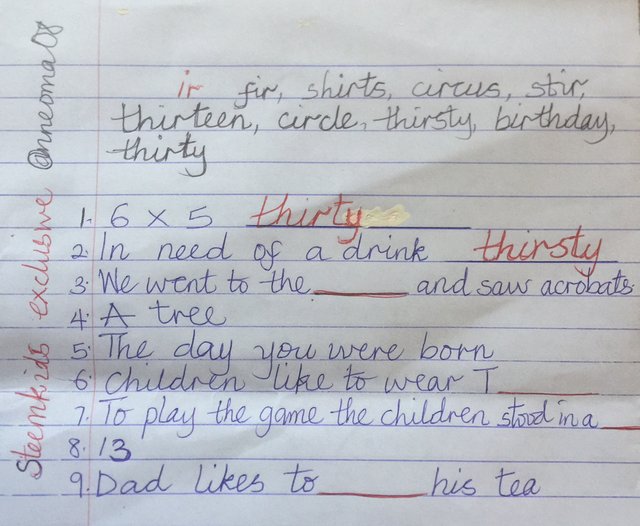 ir fir, shirts, circus, stir,
thirteen, circle, thirsty, birthday,
thirty
1. 6 x 5 thirty
2. In need of a drink thirsty
3. We went to the ______ and saw acrobats
4. A tree
5. The day you were born
6. Children like to wear T______
7. To play the game the children stood in a ___
8. 13
9. Dad likes to ______ his tea
Steemkids exclusive @nneoma08